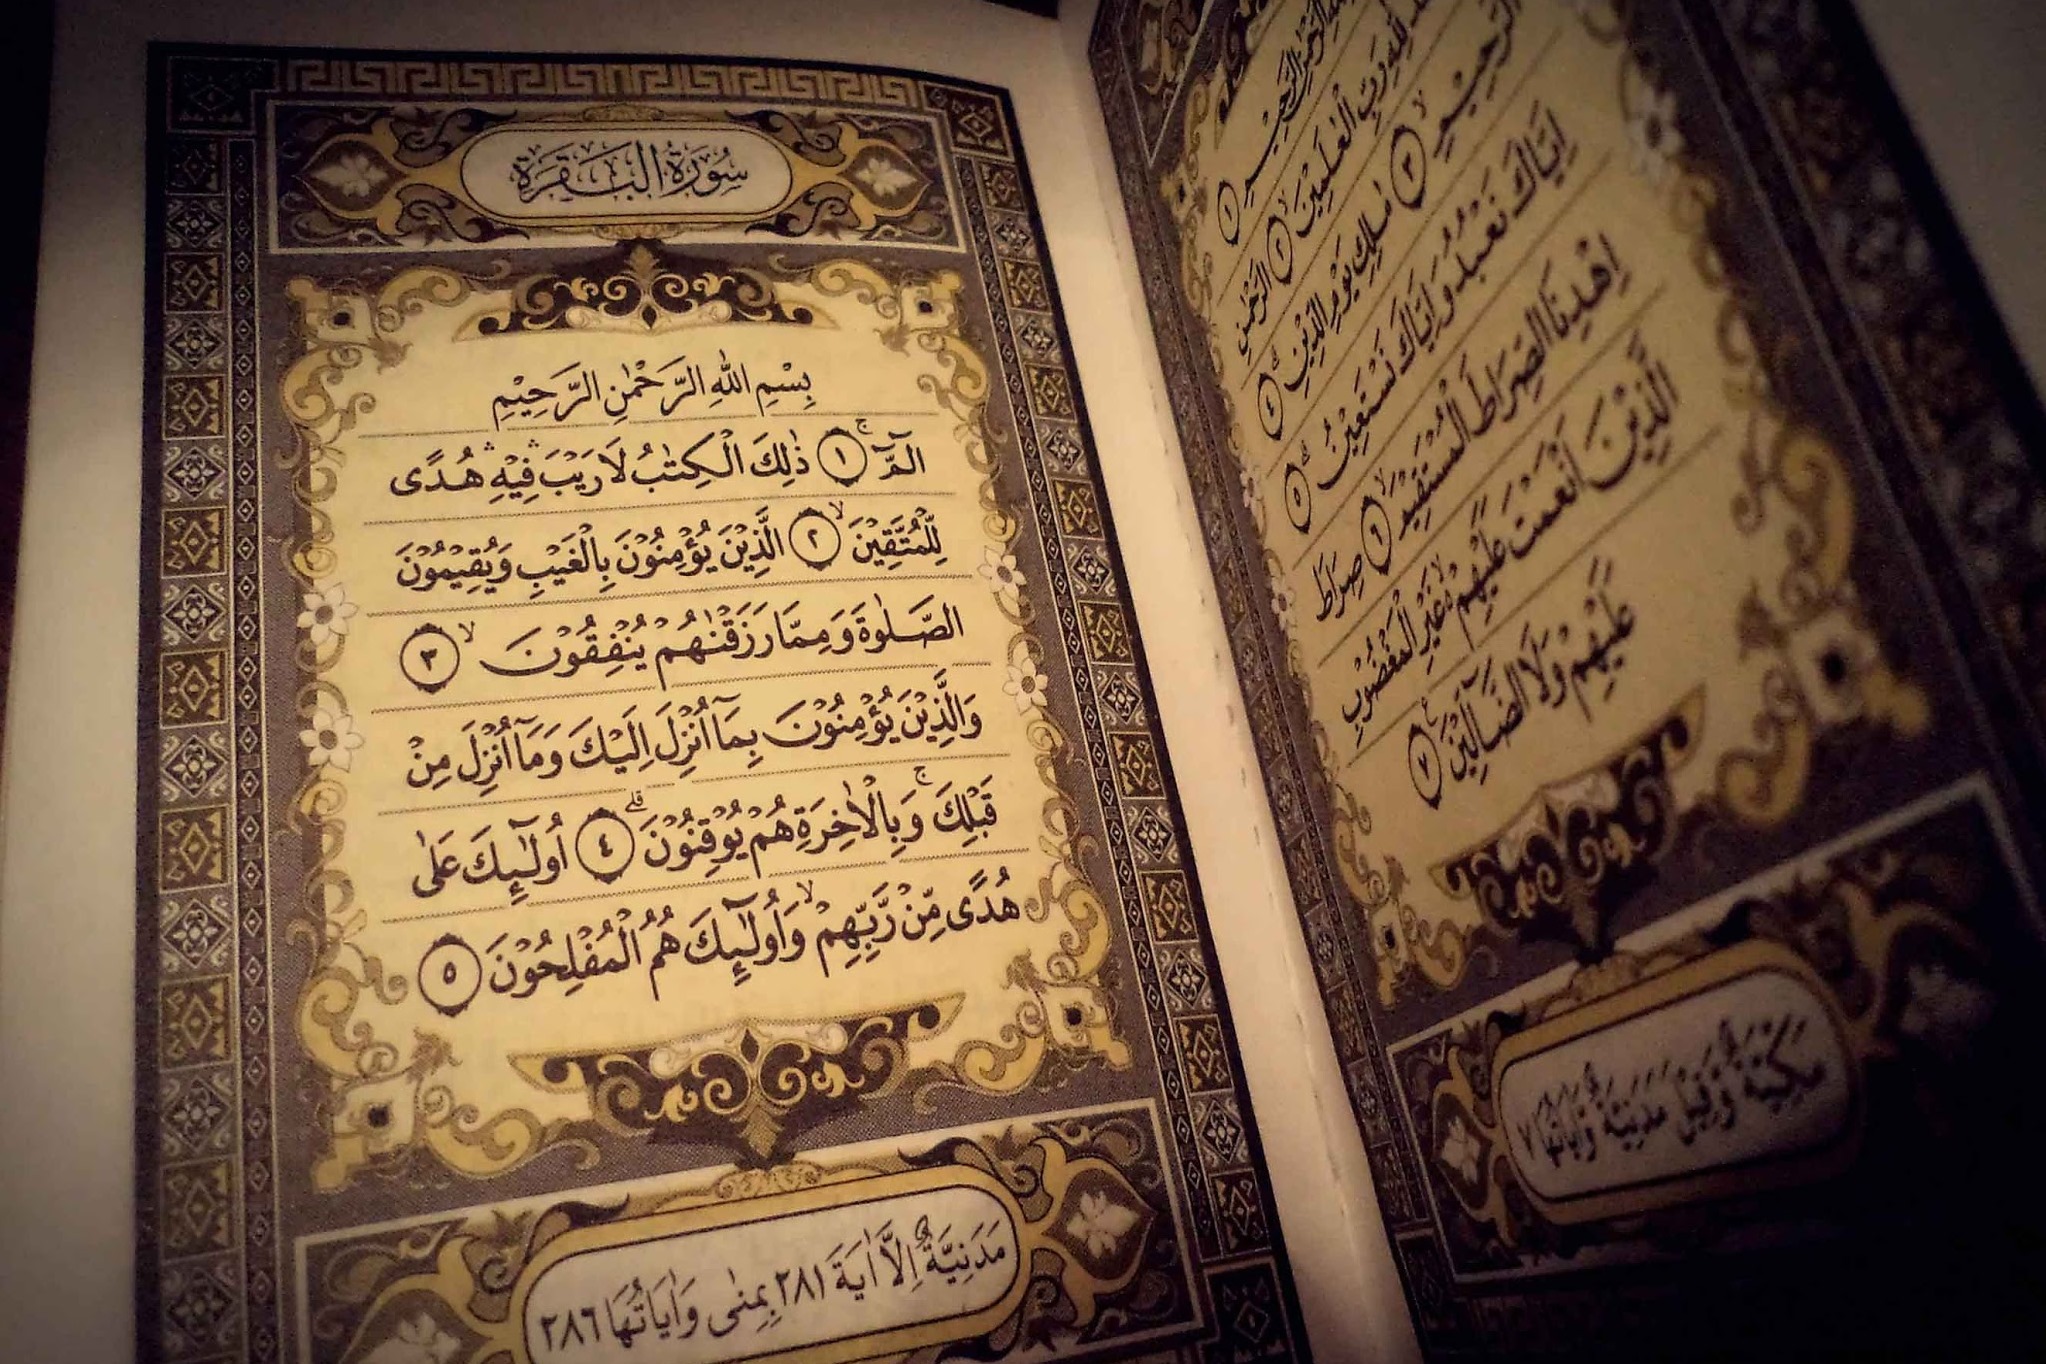 بِسْمِ اللهِ الرَّحْمٰنِ الرَّحِيْمِ ١
لِلّٰهِ رَبِّ الْعٰلَمِيْنَ ٢ الرَّحْمٰنِ
الرَّحِيْمِ ٣ مٰلِكِ يَوْمِ الدِّيْنِ ٤
اِيَّاكَ نَعْبُدُ وَاِيَّاكَ نَسْتَعِيْنُ ٥
اِهْدِنَا الصِّرَاطَ الْمُسْتَقِيْمَ ٦ صِرَاطَ
الَّذِيْنَ اَنْعَمْتَ عَلَيْهِمْ غَيْرِ الْمَغْضُوْبِ
عَلَيْهِمْ وَلَا الضَّاۤلِّيْنَ ٧
مَكِّيَّةٌ وَقِيْلَ مَدَنِيَّةٌ وَاٰيَاتُهَا ٧
سُوْرَةُ الْبَقَرَةِ
بِسْمِ اللهِ الرَّحْمٰنِ الرَّحِيْمِ
الۤمّۤ ۚ ١ ذٰلِكَ الْكِتٰبُ لَا رَيْبَ ۛ فِيْهِ ۛ هُدًى
لِّلْمُتَّقِيْنَ ۙ ٢ الَّذِيْنَ يُؤْمِنُوْنَ بِالْغَيْبِ وَيُقِيْمُوْنَ
الصَّلٰوةَ وَمِمَّا رَزَقْنٰهُمْ يُنْفِقُوْنَ ۙ ٣
وَالَّذِيْنَ يُؤْمِنُوْنَ بِمَآ اُنْزِلَ اِلَيْكَ وَمَآ اُنْزِلَ مِنْ
قَبْلِكَ ۚ وَبِالْاٰخِرَةِ هُمْ يُوْقِنُوْنَ ۗ ٤ اُولٰۤىِٕكَ عَلٰى
هُدًى مِّنْ رَّبِّهِمْ ۙ وَاُولٰۤىِٕكَ هُمُ الْمُفْلِحُوْنَ ٥
مَدَنِيَّةٌ اِلَّا اٰيَةَ ٢٨١ بِمِنٰى وَاٰيَاتُهَا ٢٨٦